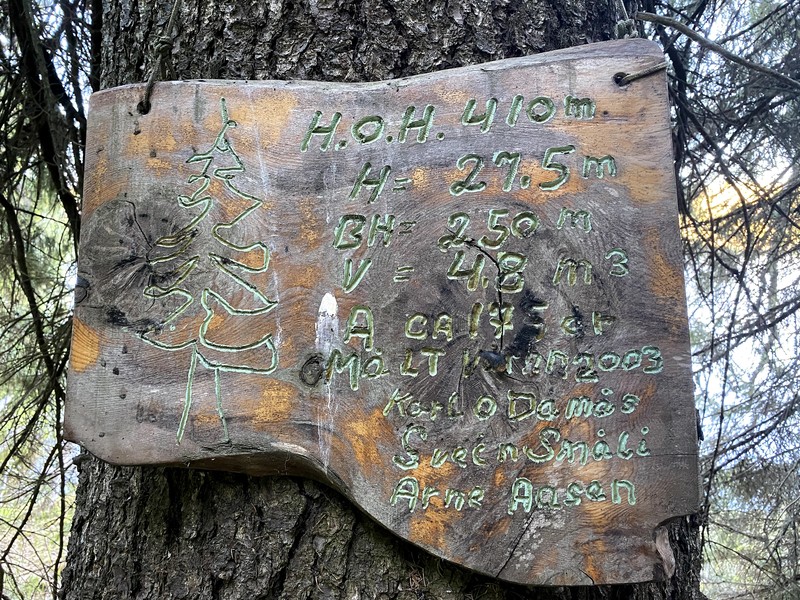 H.O.H. 410m
H= 27.5m
BH= 250 m
V = 4.8 m³
A ca 175 år
MåLT 2003
Karlo Damås
Svein Småli
Arne Aasen